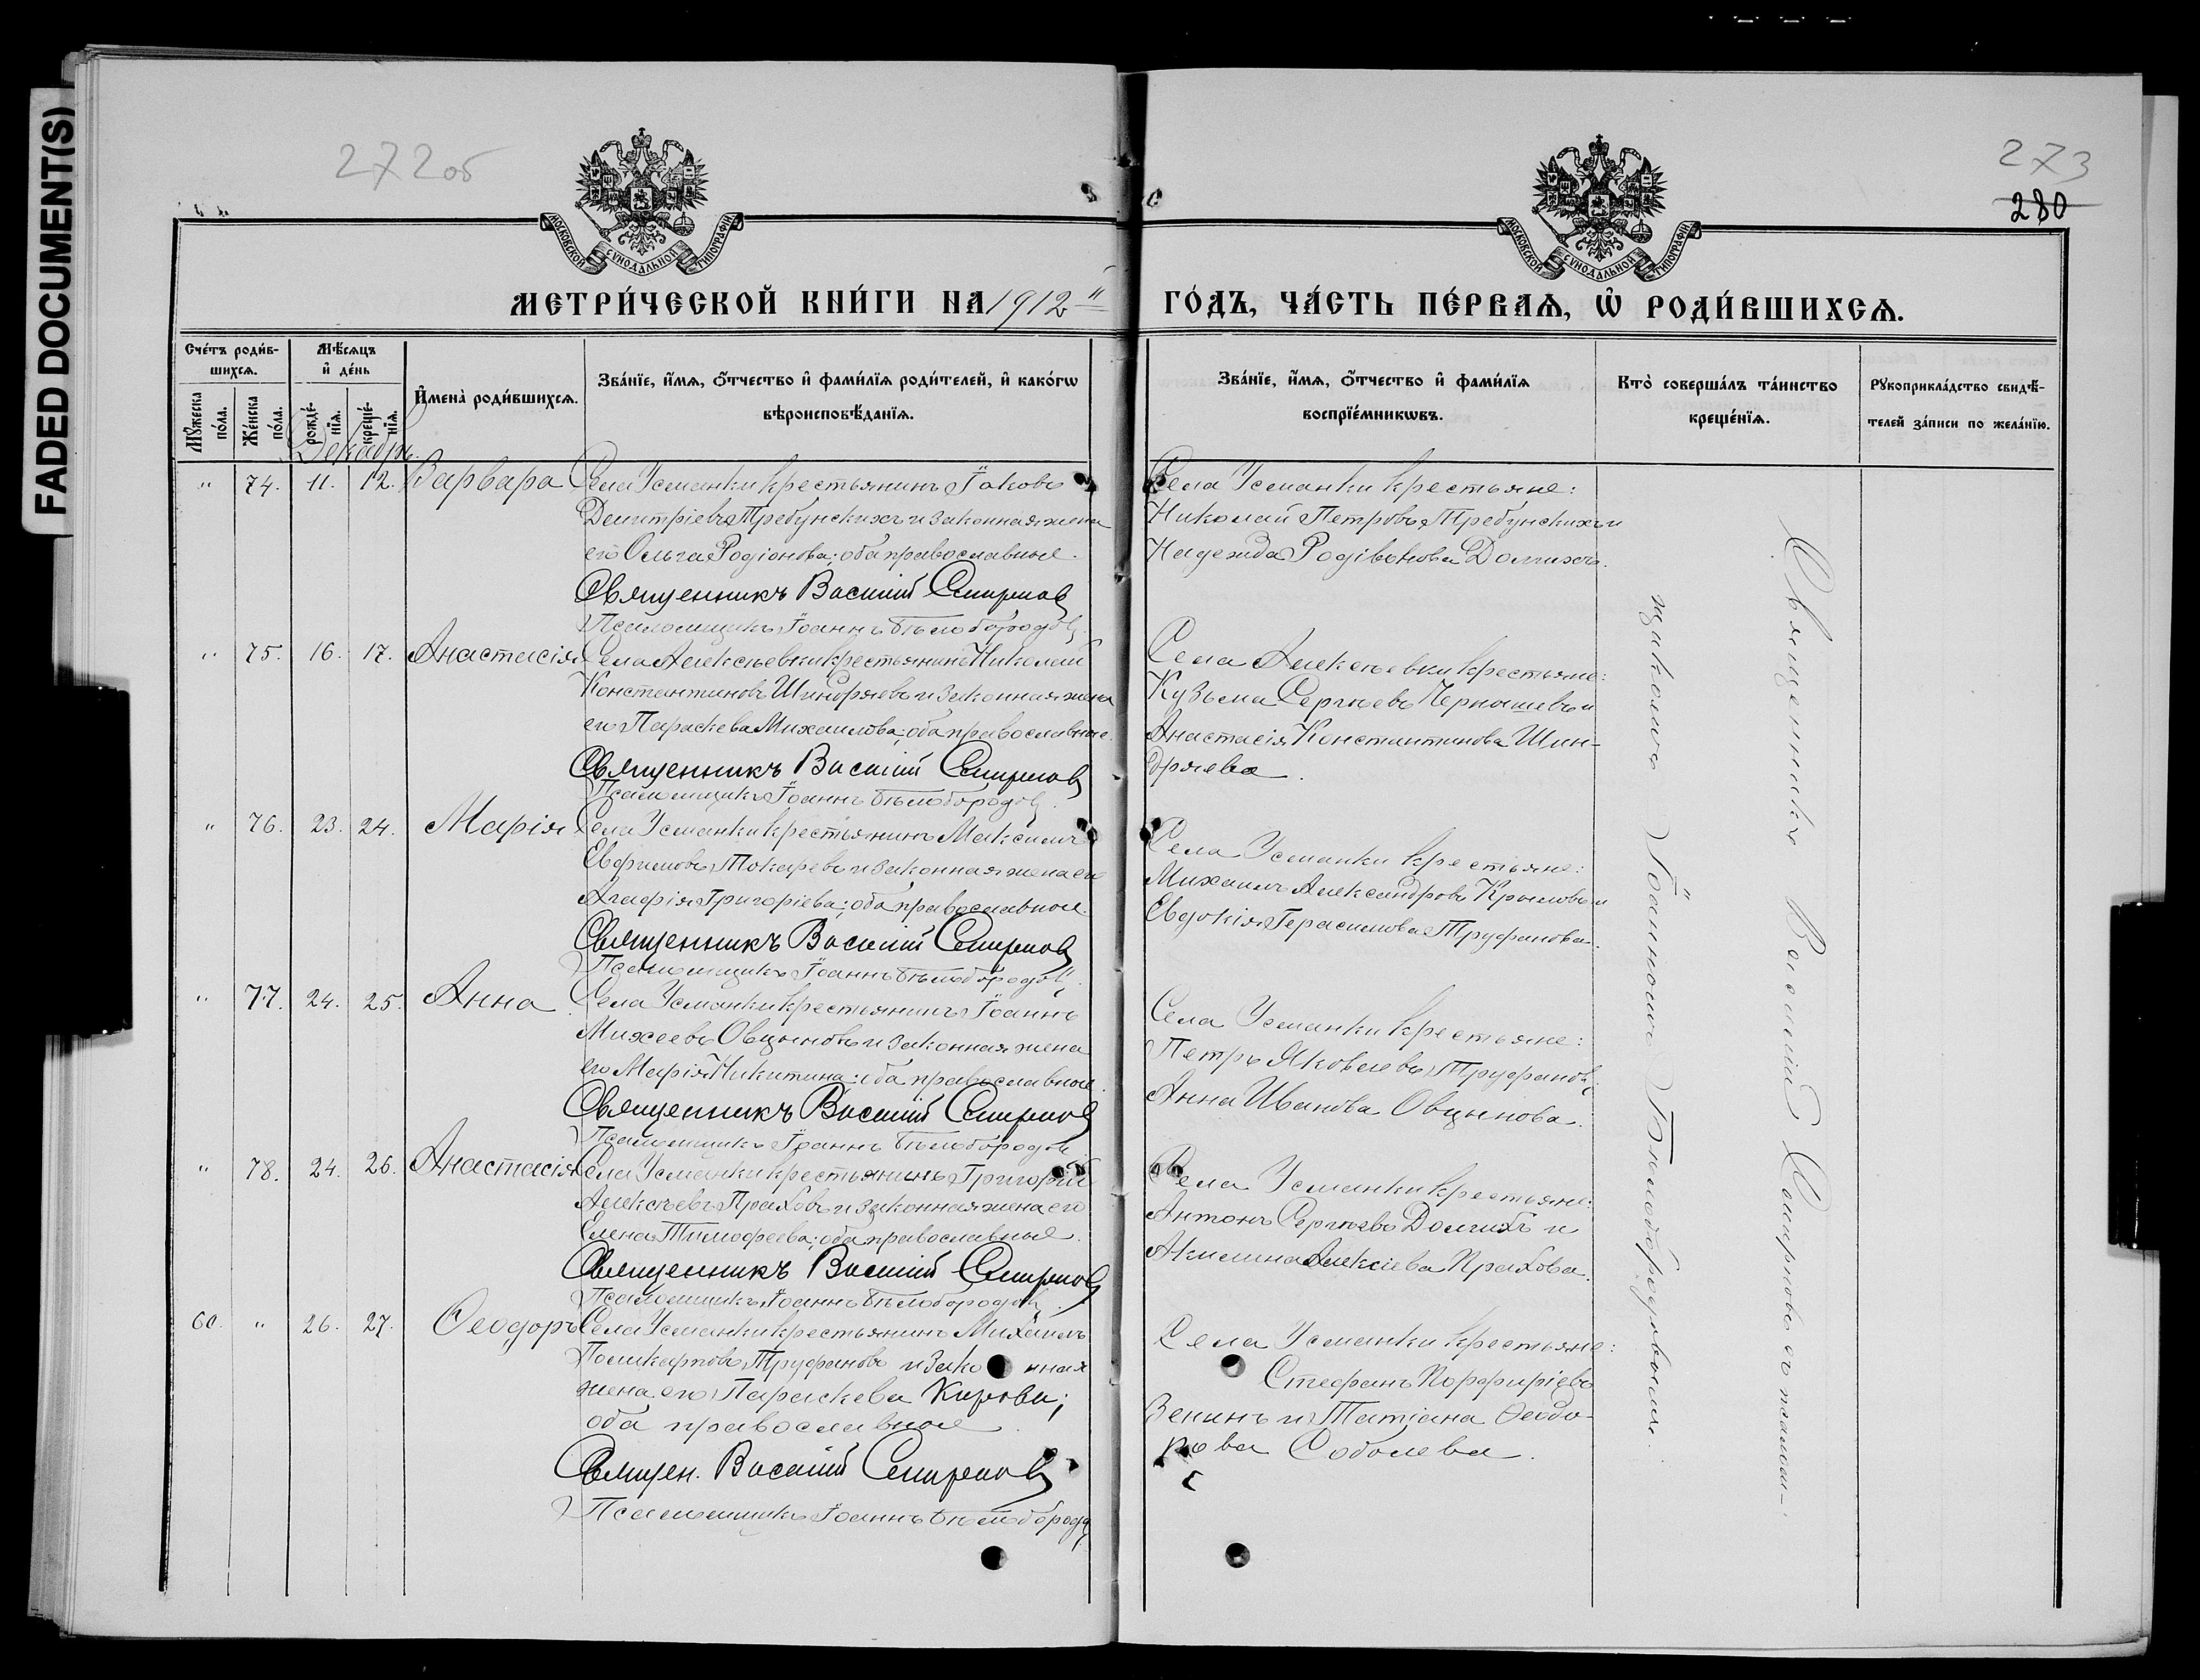 FADED DOCUMENT(S)
272об
273
280
МОСКОВСКОЙ СѴНОДАЛЬНОЙ ТИПОГРАФІИ
МОСКОВСКОЙ СѴНОДАЛЬНОЙ ТИПОГРАФІИ
МЕТРИ́ЧЕСКОЙ КНИ́ГИ НА 1912 ГО́ДЪ, ЧА́СТЬ ПЕ́РВАѦ, Ѡ҆ РОДИ́ВШИХСѦ.
Сче́тъ роди́в-
шихсѧ.
Мꙋ́жеска по́ла.
Же́нска по́ла.
Мѣ́сѧцъ
и҆ де́нь
рожде́-
нїѧ.
креще́-
нїѧ.
И҆мена̀ роди́вшихсѧ.
Зва́нїе, и҆́мѧ, ѻ҆́тчество и҆ фами́лїѧ роди́телей, и҆ како́гѡ
вѣроисповѣ́данїѧ.
Зва́нїе, и҆́мѧ, ѻ҆́тчество и҆ фами́лїѧ
воспрїе́мникѡвъ.
Кто̀ соверша́лъ та́инство
креще́нїѧ.
Рꙋкоприкла́дство свидѣ́-
телей за́писи по жела́нїю.
Декабрь.
" 74. 11. 12. Варвара
Села Усманки крестьянинъ Іаковъ
Димитріевъ Требунскихъ и законная жена
его Ольга Родіонова; оба православные.
Священникъ Василій Смирновъ
Псаломщикъ Іоаннъ Бѣлобородовъ.
Села Усманки крестьяне:
Николай Петровъ Требунскихъ и
Надежда Родівонова Долгихъ.
" 75. 16. 17. Анастасія
Села Алексѣевки крестьянинъ Николай
Константиновъ Шиндряевъ и законная жена
его Параскева Михаилова; оба православные.
Священникъ Василій Смирновъ
Псаломщикъ Іоаннъ Бѣлобородовъ.
Села Алексѣевки крестьяне:
Кузьма Сергѣевъ Чернышевъ и
Анастасія Константинова Шин-
дряева.
" 76. 23. 24. Марія
Села Усманки крестьянинъ Максимъ
Евфимовъ Токаревъ и законная жена его
Агафія Григоріева; оба православные.
Священникъ Василій Смирновъ
Псаломщикъ Іоаннъ Бѣлобородовъ.
Села Усманки крестьяне:
Михаилъ Александровъ Крыловъ и
Евдокія Герасимова Труфанова.
" 77. 24. 25. Анна
Села Усманки крестьянинъ Іоаннъ
Михеевъ Овцыновъ и законная жена
его Марія Никитина; оба православные.
Священникъ Василій Смирновъ
Псаломщикъ Іоаннъ Бѣлобородовъ
Села Усманки крестьяне:
Петръ Яковлевъ Труфановъ;
Анна Иванова Овцынова.
" 78. 24. 26. Анастасія
Села Усманки крестьянинъ Григорій
Алексѣевъ Праховъ и законная жена его
Елена Тимофеева; оба православные.
Священникъ Василій Смирновъ
Псаломщикъ Іоаннъ Бѣлобородовъ.
Села Усманки крестьяне:
Антонъ Сергѣевъ Долгихъ и
Акилина Алексіева Прахова.
60. " 26. 27. Ѳеодоръ
Села Усманки крестьянинъ Михаилъ
Поликарповъ Труфановъ и законная
жена его Параскева Карпова;
оба православные.
Священ. Василій Смирновъ
Псаломщикъ Іоаннъ Бѣлобородовъ
Села Усманки крестьяне:
Стефанъ Порфиріевъ
Зенинъ и Татіана Ѳеодо-
рова Соболева.
Священникъ Василій Смирновъ съ псалом-
щикомъ Іоанномъ Бѣлобородовымъ.